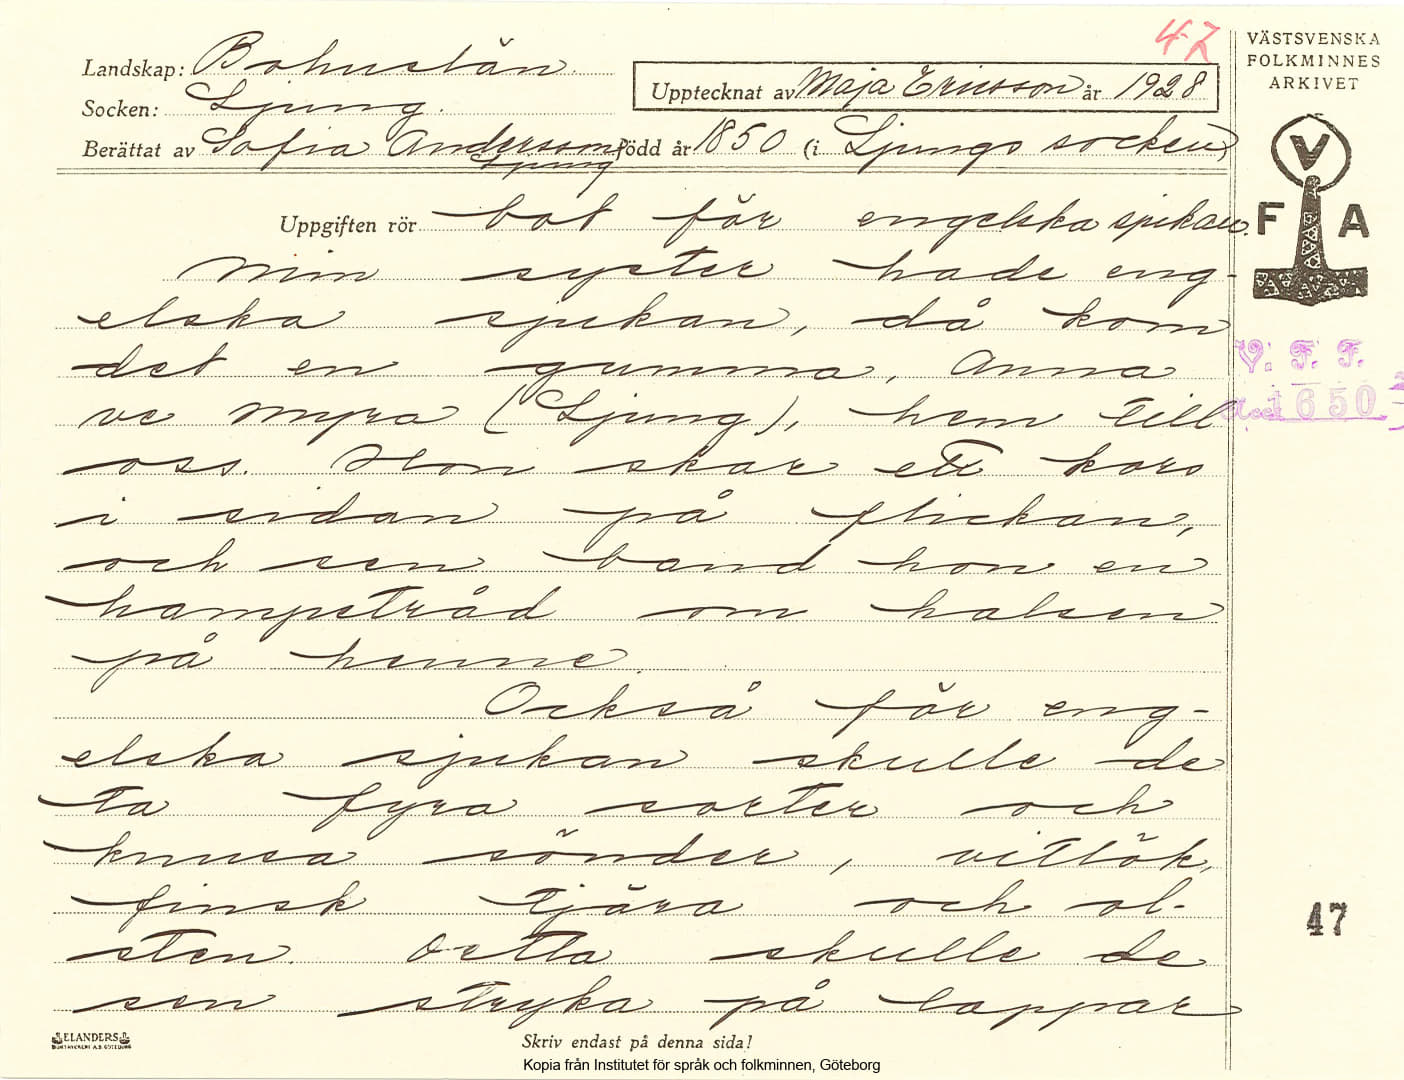 47
VÄSTSVENSKA
FOLKMINNES
ARKIVET
Landskap: Bohuslän.
Upptecknat av Maja Ericsson år 1928
Socken: Ljung.
Berättat av Sofia Andersson född år 1850 (i Ljungs socken)
Ljung
V
F A
Uppgiften rör bot för engelska sjukan.
Min syster hade eng-
elska sjukan, då kom
det en gumma, Anna
ve Myra (Ljung), hem till
oss. Hon skar ett kors
i sidan på flickan,
och sen band hon en
hampetråd om halsen
på henne.
Också för eng-
elska sjukan skulle de
ta fyra sorter och
knusa sönder, vitlök,
finsk tjära och ol-
sten. Detta skulle de
sen stryka på lappar
V. F. F.
Acc. 1650
47
ELANDERS
BOKTRYCKERI A.B. GÖTEBORG
Skriv endast på denna sida!
Kopia från Institutet för språk och folkminnen, Göteborg